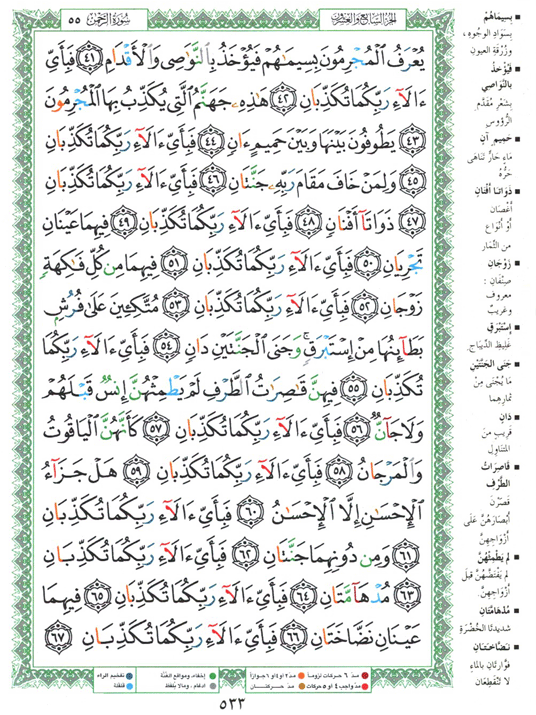 سُورَةُ الرَّحْمٰن ٥٥
الجزء السابع والعشرون
يُعْرَفُ الْمُجْرِمُونَ بِسِيمَاهُمْ فَيُؤْخَذُ بِالنَّوَاصِي وَالْأَقْدَامِ ﴿٤١﴾ فَبِأَيِّ
ءَالَآءِ رَبِّكُمَا تُكَذِّبَانِ ﴿٤٢﴾ هَٰذِهِۦ جَهَنَّمُ الَّتِي يُكَذِّبُ بِهَا الْمُجْرِمُونَ
﴿٤٣﴾ يَطُوفُونَ بَيْنَهَا وَبَيْنَ حَمِيمٍ ءَانٍ ﴿٤٤﴾ فَبِأَيِّ ءَالَآءِ رَبِّكُمَا تُكَذِّبَانِ
﴿٤٥﴾ وَلِمَنْ خَافَ مَقَامَ رَبِّهِۦ جَنَّتَانِ ﴿٤٦﴾ فَبِأَيِّ ءَالَآءِ رَبِّكُمَا تُكَذِّبَانِ
﴿٤٧﴾ ذَوَاتَآ أَفْنَانٍ ﴿٤٨﴾ فَبِأَيِّ ءَالَآءِ رَبِّكُمَا تُكَذِّبَانِ ﴿٤٩﴾ فِيهِمَا عَيْنَانِ
تَجْرِيَانِ ﴿٥٠﴾ فَبِأَيِّ ءَالَآءِ رَبِّكُمَا تُكَذِّبَانِ ﴿٥١﴾ فِيهِمَا مِن كُلِّ فَٰكِهَةٍ
زَوْجَانِ ﴿٥٢﴾ فَبِأَيِّ ءَالَآءِ رَبِّكُمَا تُكَذِّبَانِ ﴿٥٣﴾ مُتَّكِـِٔينَ عَلَىٰ فُرُشٍۭ
بَطَآئِنُهَا مِنْ إِسْتَبْرَقٍ ۚ وَجَنَى الْجَنَّتَيْنِ دَانٍ ﴿٥٤﴾ فَبِأَيِّ ءَالَآءِ رَبِّكُمَا
تُكَذِّبَانِ ﴿٥٥﴾ فِيهِنَّ قَٰصِرَٰتُ الطَّرْفِ لَمْ يَطْمِثْهُنَّ إِنسٌ قَبْلَهُمْ
وَلَا جَآنٌّ ﴿٥٦﴾ فَبِأَيِّ ءَالَآءِ رَبِّكُمَا تُكَذِّبَانِ ﴿٥٧﴾ كَأَنَّهُنَّ الْيَاقُوتُ
وَالْمَرْجَانُ ﴿٥٨﴾ فَبِأَيِّ ءَالَآءِ رَبِّكُمَا تُكَذِّبَانِ ﴿٥٩﴾ هَلْ جَزَآءُ
الْإِحْسَٰنِ إِلَّا الْإِحْسَٰنُ ﴿٦٠﴾ فَبِأَيِّ ءَالَآءِ رَبِّكُمَا تُكَذِّبَانِ
﴿٦١﴾ وَمِن دُونِهِمَا جَنَّتَانِ ﴿٦٢﴾ فَبِأَيِّ ءَالَآءِ رَبِّكُمَا تُكَذِّبَانِ
﴿٦٣﴾ مُدْهَآمَّتَانِ ﴿٦٤﴾ فَبِأَيِّ ءَالَآءِ رَبِّكُمَا تُكَذِّبَانِ ﴿٦٥﴾ فِيهِمَا
عَيْنَانِ نَضَّاخَتَانِ ﴿٦٦﴾ فَبِأَيِّ ءَالَآءِ رَبِّكُمَا تُكَذِّبَانِ ﴿٦٧﴾
بِسِيمَاهُمْ
بسَوَادِ الوُجوهِ،
وزُرْقةِ العيونِ
فَيُؤْخَذُ
بالنَّواصي
بشعْرِ مُقدَّمِ
الرُّؤوس
حَمِيمٍ آنٍ
مَاءٍ حَارٍّ تَناهَى
حَرُّهُ
ذَوَاتَا أَفْنَانٍ
أَغْصَان
أوْ أنْوَاعٍ
من الثِّمَار
زَوْجَانِ
صِنْفَانِ :
معروف
وغريبٌ
إسْتَبْرَقٍ
غَليظِ الدِّيبَاجِ
جَنَى الجَنَّتَيْنِ
مَا يُجْنَى مِنْ
ثمارِهِما
دَانٍ
قَريبٌ من
المتناوِل
قَاصِرَاتُ
الطَّرْفِ
قصَرْنَ
أبْصَارَهُنَّ عَلَى
أزْوَاجِهِنَّ
لم يَطْمِثْهُنَّ
لم يَفْتَضَّهُنَّ قبلَ
أزْوَاجِهِنَّ
مُدْهَامَّتَانِ
شَديدَتَا الخُضْرَةِ
نَضَّاخَتَانِ
فوَّارتَانِ بِالماءِ
لا تَنْقَطِعَانِ
مدّ ٦ حركات لزوماً
مدّ ٢ أو ٤ أو ٦ جوازاً
إخفاء، ومواقع الغنّة
تفخيم الراء
مدّ واجب ٤ أو ٥ حركات
مدّ حركتان
ادغام، وما لا يُلفظ
قلقلة
٥٣٣